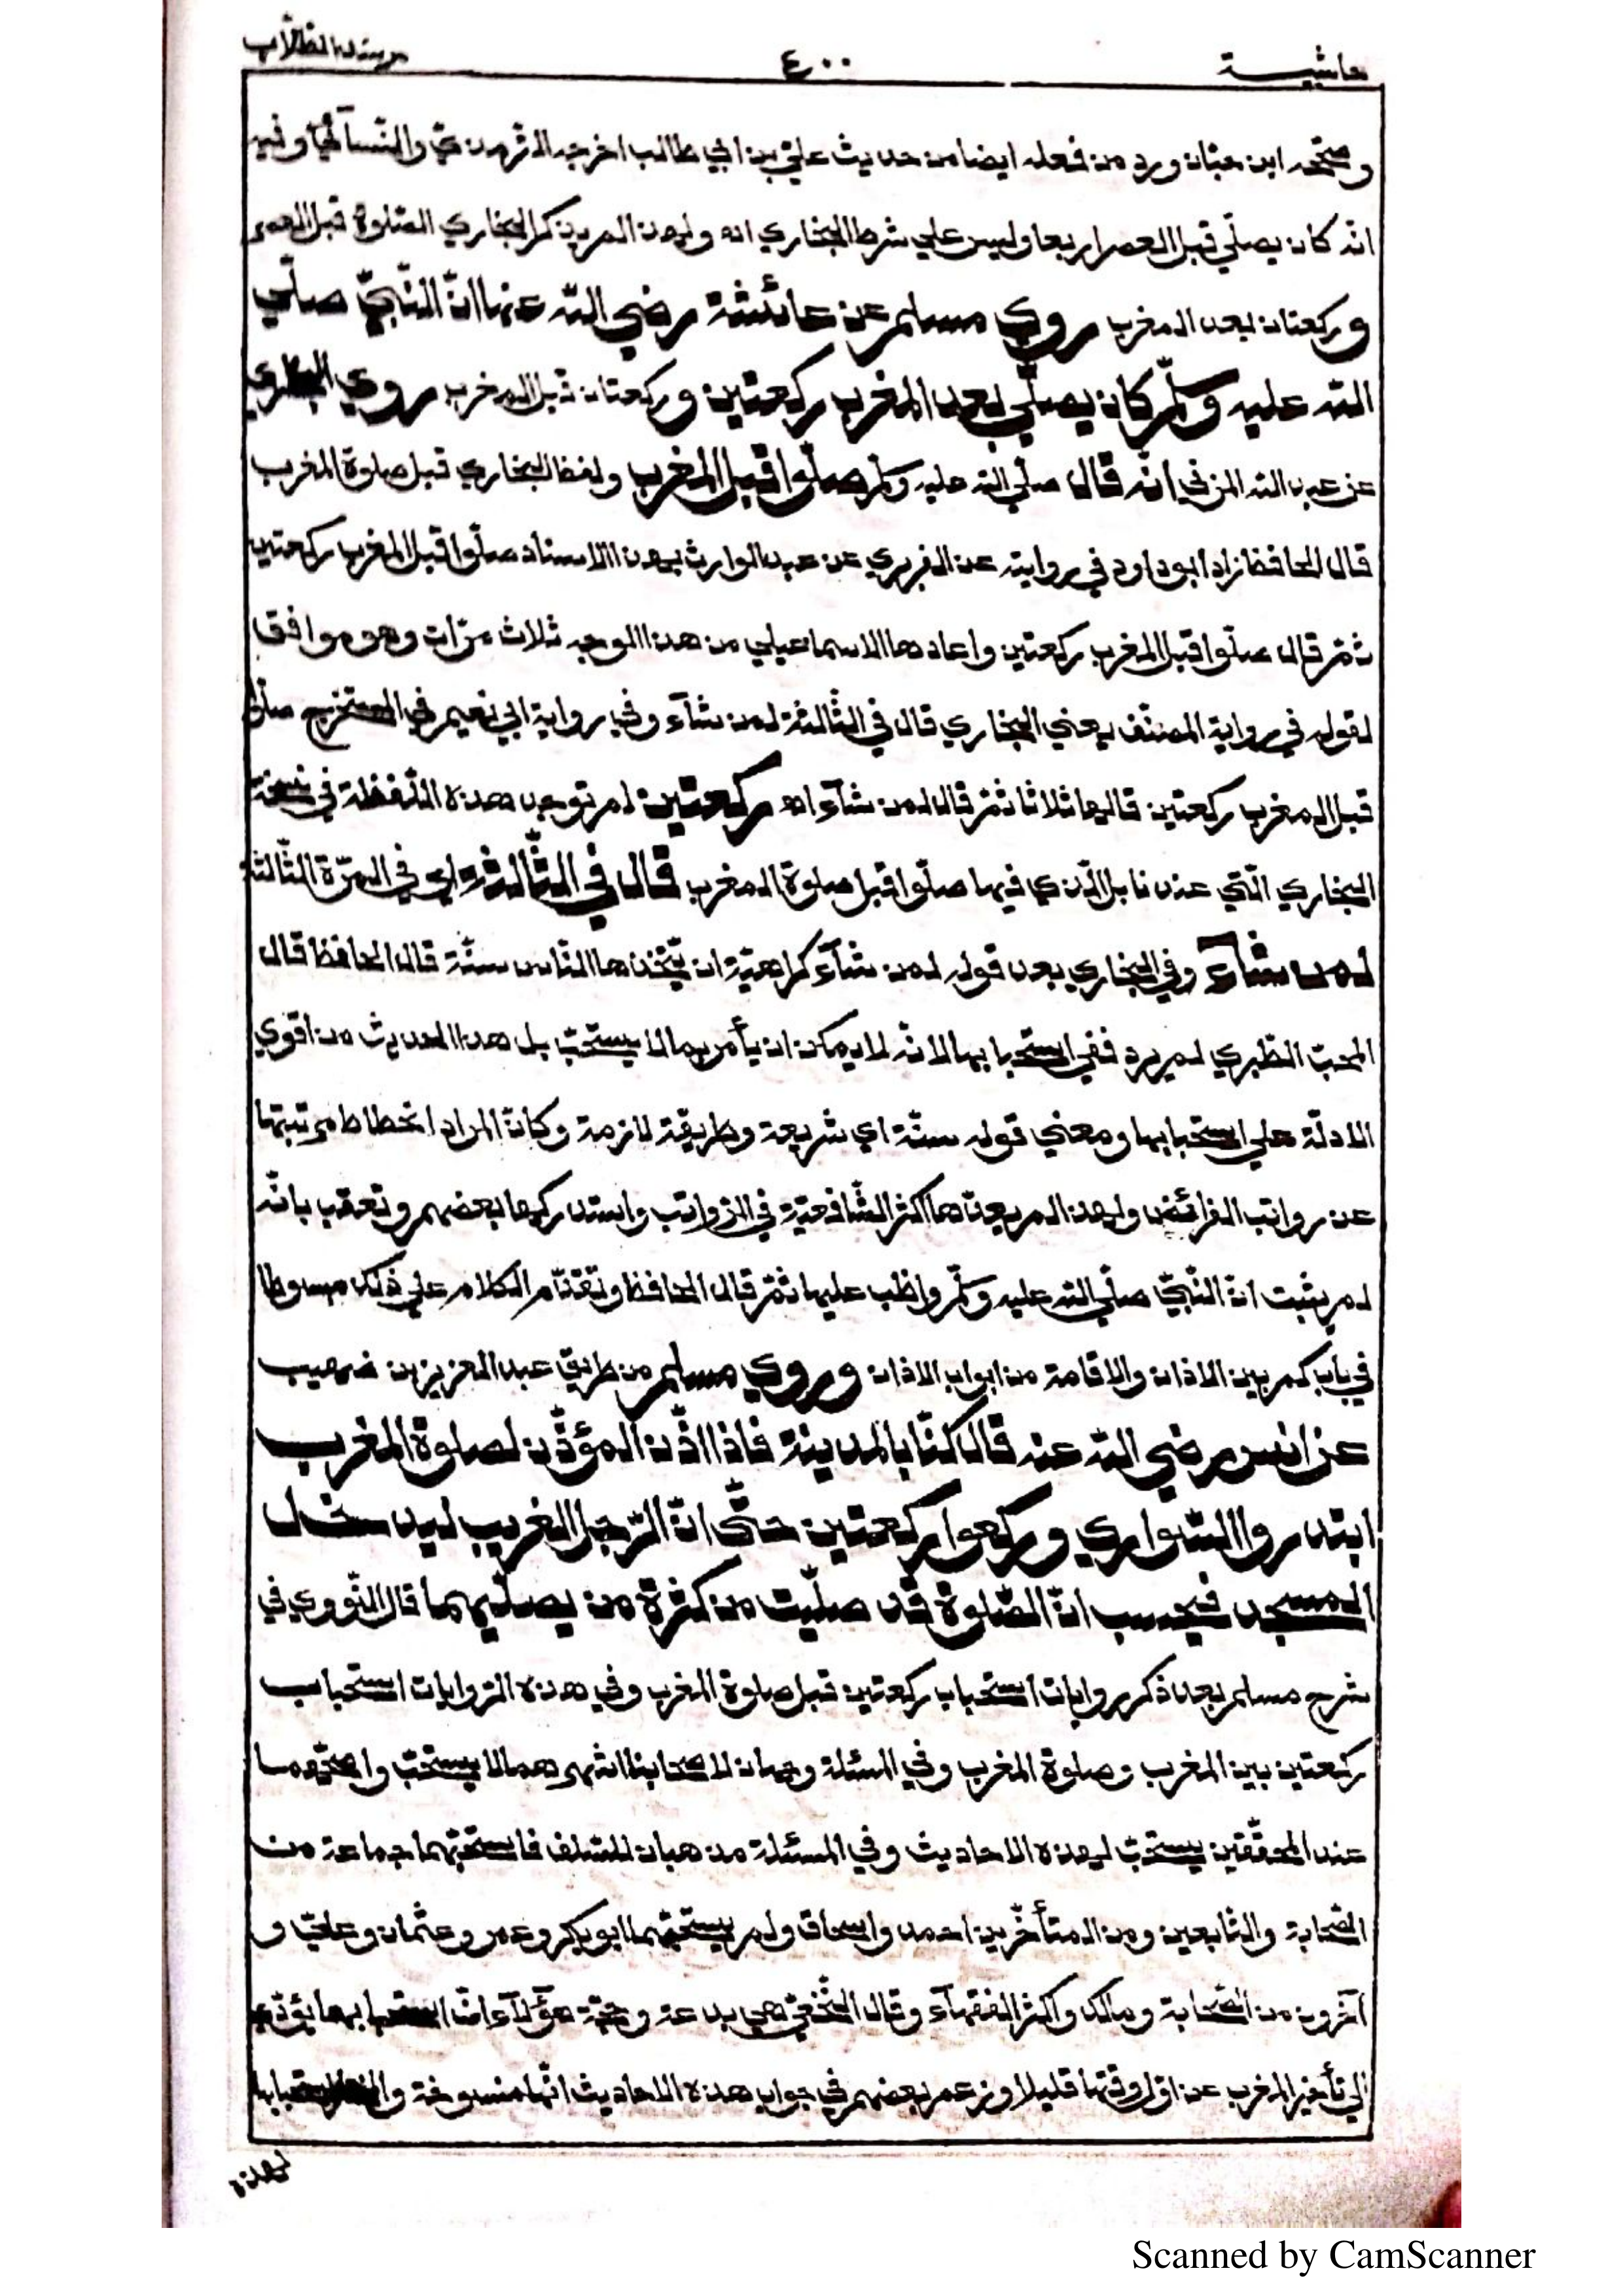 حاشية ٤٠٠ مرشد الطلاب
وصححه ابن حبان وورد من فعله ايضا من حديث عليّ بن ابي طالب اخرجه الترمذيّ والنّسآئيّ وفيه
انّه كان يصلّي قبل العصر اربعا وليس علي شرط البخاري اه ولهذا لم يذكر البخاري الصّلوة قبل العصر
وركعتان بعد المغرب روي مسلم عن عائشة رضي اللّه عنها انّ النّبيّ صلّي
اللّه عليه وسلّم كان يصلّي بعد المغرب ركعتين وركعتان قبل المغرب روي البخاري
عن عبد اللّه المزني انّه قال صلّي اللّه عليه وسلّم صلّوا قبل المغرب ولفظ البخاري قبل صلوة المغرب
قال الحافظ زاد ابو داود في روايته عن الفربري عن عبد الوارث بهذا الاسناد صلّوا قبل المغرب ركعتين
ثمّ قال صلّوا قبل المغرب ركعتين واعادها الاسماعيلي من هذا الوجه ثلاث مرّات وهو موافق
لقوله في رواية المصنّف يعني البخاري قال في الثّالثة لمن شآء وفي رواية ابي نعيم في المستخرج صلّوا
قبل المغرب ركعتين قالها ثلاثا ثمّ قال لمن شآء اه ركعتين لم توجد هذه اللّفظة في نسخة
البخاري الّتي عندنا بل الّذي فيها صلّوا قبل صلوة المغرب قال في الثّالثة اي في المرّة الثّالثة
لمن شآء وفي البخاري بعد قوله لمن شآء كراهيّة ان يتّخذها النّاس سنّة قال الحافظ قال
المحبّ الطّبري لم يرد نفي استحبابها لانّه لا يمكن ان يأمر بما لا يستحبّ بل هذا الحديث من اقوي
الادلّة علي استحبابها ومعني قوله سنّة اي شريعة وطريقة لازمة وكانّ المراد انحطاط مرتبتها
عن رواتب الفرائض ولهذا لم يعدّها اكثر الشّافعيّة في الرّواتب واستدركها بعضهم وتعقب بانّه
لم يثبت انّ النّبيّ صلّي اللّه عليه وسلّم واظب عليها ثمّ قال الحافظ وتقدّم الكلام علي ذلك مبسوطا
في باب كم بين الاذان والاقامة من ابواب الاذان وروي مسلم من طريق عبد العزيز بن صهيب
عن انس رضي اللّه عنه قال كنّا بالمدينة فاذا اذّن المؤذّن لصلوة المغرب
ابتدروا السّواري وركعوا ركعتين حتّي انّ الرّجل الغريب ليدخل
المسجد فيحسب انّ الصّلوة قد صلّيت من كثرة من يصلّيهما قال النّووي في
شرح مسلم بعد ذكر روايات استحباب ركعتين قبل صلوة المغرب وفي هذه الرّوايات استحباب
ركعتين بين المغرب وصلوة المغرب وفي المسئلة وجهان لاصحابنا اشهرهما لا يستحبّ واصحّهما
عند المحقّقين يستحبّ لهذه الاحاديث وفي المسئلة مذهبان للسّلف فاستحبّهما جماعة من
الصّحابة والتّابعين ومن المتأخّرين احمد واسحاق ولم يستحبّهما ابو بكر وعمر وعثمان وعليّ و
آخرون من الصّحابة ومالك واكثر الفقهآء وقال النّخعيّ هي بدعة وحجّة هؤلآء انّ استحبابهما يؤدّي
الي تأخير المغرب عن اوّل وقتها قليلا وزعم بعضهم في جواب هذه الاحاديث انّها منسوخة والمختار استحبابها
لهذه
Scanned by CamScanner